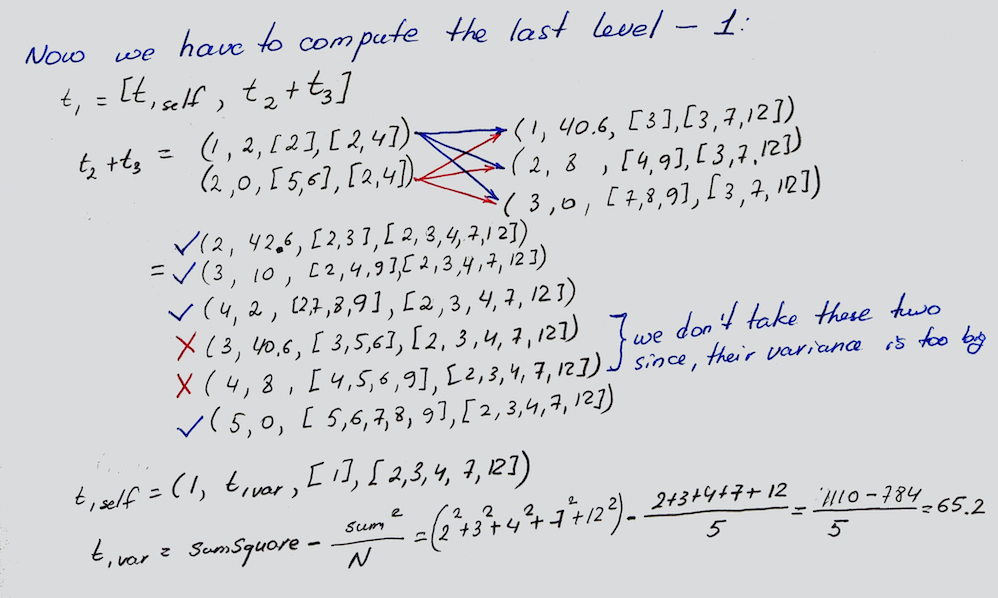 Now we have to compute the last level - 1:
t₁ = [t₁self, t₂ + t₃]
t₂ + t₃ = (1, 2, [2], [2,4]) (1, 40.6, [3], [3,7,12])
(2, 0, [5,6], [2,4]) (2, 8, [4,9], [3,7,12])
(3, 0, [7,8,9], [3,7,12])
✓ (2, 42.6, [2,3], [2,3,4,7,12])
= ✓ (3, 10, [2,4,9], [2,3,4,7,12])
✓ (4, 2, [2,7,8,9], [2,3,4,7,12])
✗ (3, 40.6, [3,5,6], [2,3,4,7,12]) } we don't take these two
✗ (4, 8, [4,5,6,9], [2,3,4,7,12]) since, their variance is too big
✓ (5, 0, [5,6,7,8,9], [2,3,4,7,12])
t₁self = (1, t₁var, [1], [2,3,4,7,12])
t₁var = SumSquare - sum²/N = (2²+3²+4²+7²+12²) - 2+3+4+7+12/5 = 1110-784/5 = 65.2